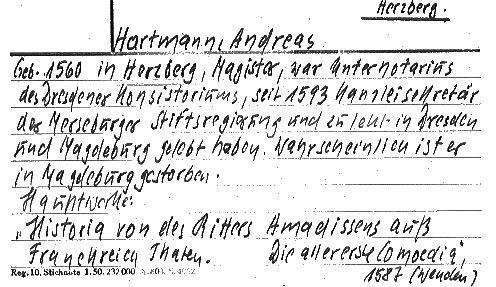 Herzberg.
Hartmann, Andreas
Geb. 1560 in Herzberg, Magister, war Unternotarius
des Dresdener Konsistoriums, seit 1593 Kanzleisekretär
der Merseburger Stiftsregierung und zuletzt in Dresden
und Magdeburg gelebt haben. Wahrscheinlich ist er
in Magdeburg gestorben.
Hauptwerke:
„Historia von des Ritters Amadissens auß
Franckreich Thaten. Die allererste Comoedia",
Reg. 10. Stichnote 1. 50. 232 000
1587 (Wenden)